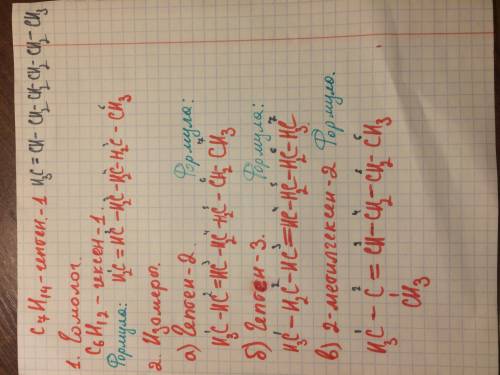 C7H14-гептен-1 H3C=CH-CH2-CH2-CH2-CH2-CH3
1. Гомологи.
C6H12-гексен-1
Формула: H2C=HC-H2C-H2C-H2C-CH3
2. Изомеры.
а) Гептен-2. Формула:
H3C-HC=HC-H2C-H2C-CH2 CH3
б) Гептен-3. Формула:
H3C-H2C-HC=HC-H2C-H2C-H3C
в) 2-метилгексен-2 Формула.
H3C-C=CH-CH2-CH2-CH3
CH3